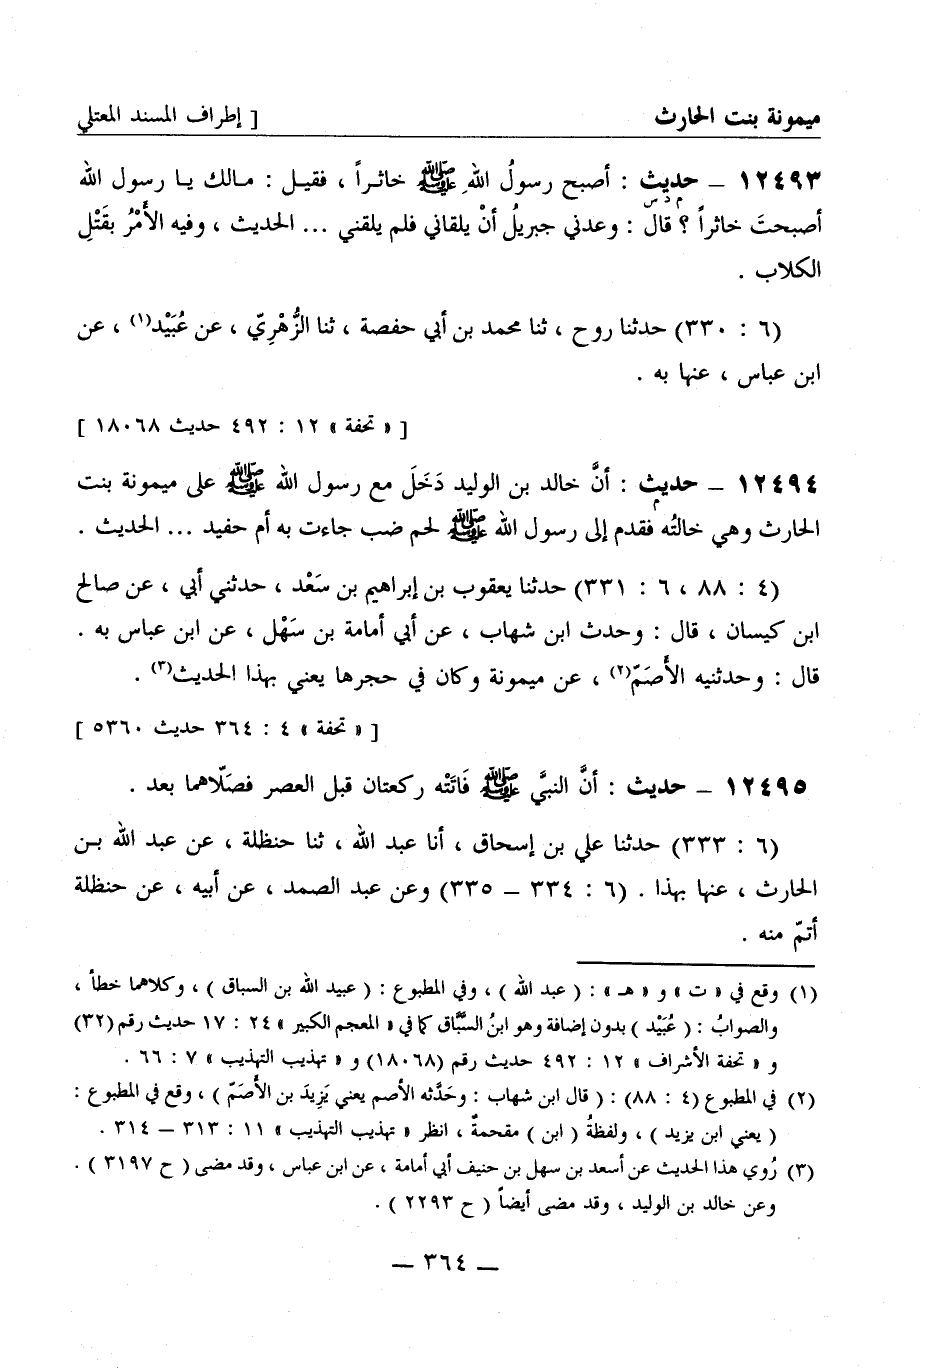 ميمونة بنت الحارث [ إطراف المسند المعتلي
١٢٤٩٣ – حديث : أصبح رسولُ اللهِ ﷺ خاثراً ، فقيل : مالك يا رسول الله
م د س
أصبحتَ خاثراً ؟ قال : وعدني جبريلُ أنْ يلقاني فلم يلقني ... الحديث ، وفيه الأَمْرُ بقَتْلِ
الكلاب .
(٦ : ٣٣٠) حدثنا روح ، ثنا محمد بن أبي حفصة ، ثنا الزُّهْرِيّ ، عن عُبَيْد(١) ، عن
ابن عباس ، عنها به .
[ « تحفة » ١٢ : ٤٩٢ حديث ١٨٠٦٨ ]
١٢٤٩٤ – حديث : أنَّ خالد بن الوليد دَخَلَ مع رسول الله ﷺ على ميمونة بنت
م
الحارث وهي خالتُه فقدم إلى رسول الله ﷺ لحم ضب جاءت به أم حفيد ... الحديث .
(٤ : ٨٨ ، ٦ : ٣٣١) حدثنا يعقوب بن إبراهيم بن سَعْد ، حدثني أبي ، عن صالح
ابن كيسان ، قال : وحدث ابن شهاب ، عن أبي أمامة بن سَهْل ، عن ابن عباس به .
قال : وحدثنيه الأَصَمّ(٢) ، عن ميمونة وكان في حجرها يعني بهذا الحديث(٣) .
[ « تحفة » ٤ : ٣٦٤ حديث ٥٣٦٠ ]
١٢٤٩٥ – حديث : أنَّ النبيَّ ﷺ فَاتَتْه ركعتان قبل العصر فصَلّاهما بعد .
(٦ : ٣٣٣) حدثنا علي بن إسحاق ، أنا عبد الله ، ثنا حنظلة ، عن عبد الله بن
الحارث ، عنها بهذا . (٦ : ٣٣٤ – ٣٣٥) وعن عبد الصمد ، عن أبيه ، عن حنظلة
أتمّ منه .
(١) وقع في « ت » و « هـ » : ( عبد الله ) ، وفي المطبوع : ( عبيد الله بن السباق ) ، وكلاهما خطأ ،
والصوابُ : ( عُبَيْد ) بدون إضافة وهو ابنُ السَّبَّاق كما في « المعجم الكبير » ٢٤ : ١٧ حديث رقم (٣٢)
و « تحفة الأشراف » ١٢ : ٤٩٢ حديث رقم (١٨٠٦٨) و « تهذيب التهذيب » ٧ : ٦٦ .
(٢) في المطبوع (٤ : ٨٨) : ( قال ابن شهاب : وحَدَّثه الأصم يعني يَزِيدَ بن الأَصَمّ ) ، وقع في المطبوع :
( يعني ابن يزيد ) ، ولفظةُ ( ابن ) مقحمةٌ ، انظر « تهذيب التهذيب » ١١ : ٣١٣ – ٣١٤ .
(٣) رُوي هذا الحديث عن أسعد بن سهل بن حنيف أبي أمامة ، عن ابن عباس ، وقد مضى ( ح ٣١٩٧ ) .
وعن خالد بن الوليد ، وقد مضى أيضاً ( ح ٢٢٩٣ ) .
– ٣٦٤ –